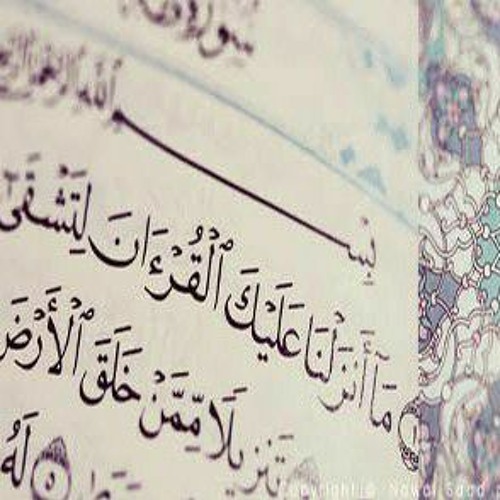 سورة
بِسْمِ اللَّهِ الرَّحْمَٰنِ
مَآ أَنزَلْنَا عَلَيْكَ ٱلْقُرْءَانَ لِتَشْقَىٰٓ
تَنزِيلًا مِّمَّنْ خَلَقَ ٱلْأَرْضَ
٥ لَهُۥ
Copyright © Nawal Saad